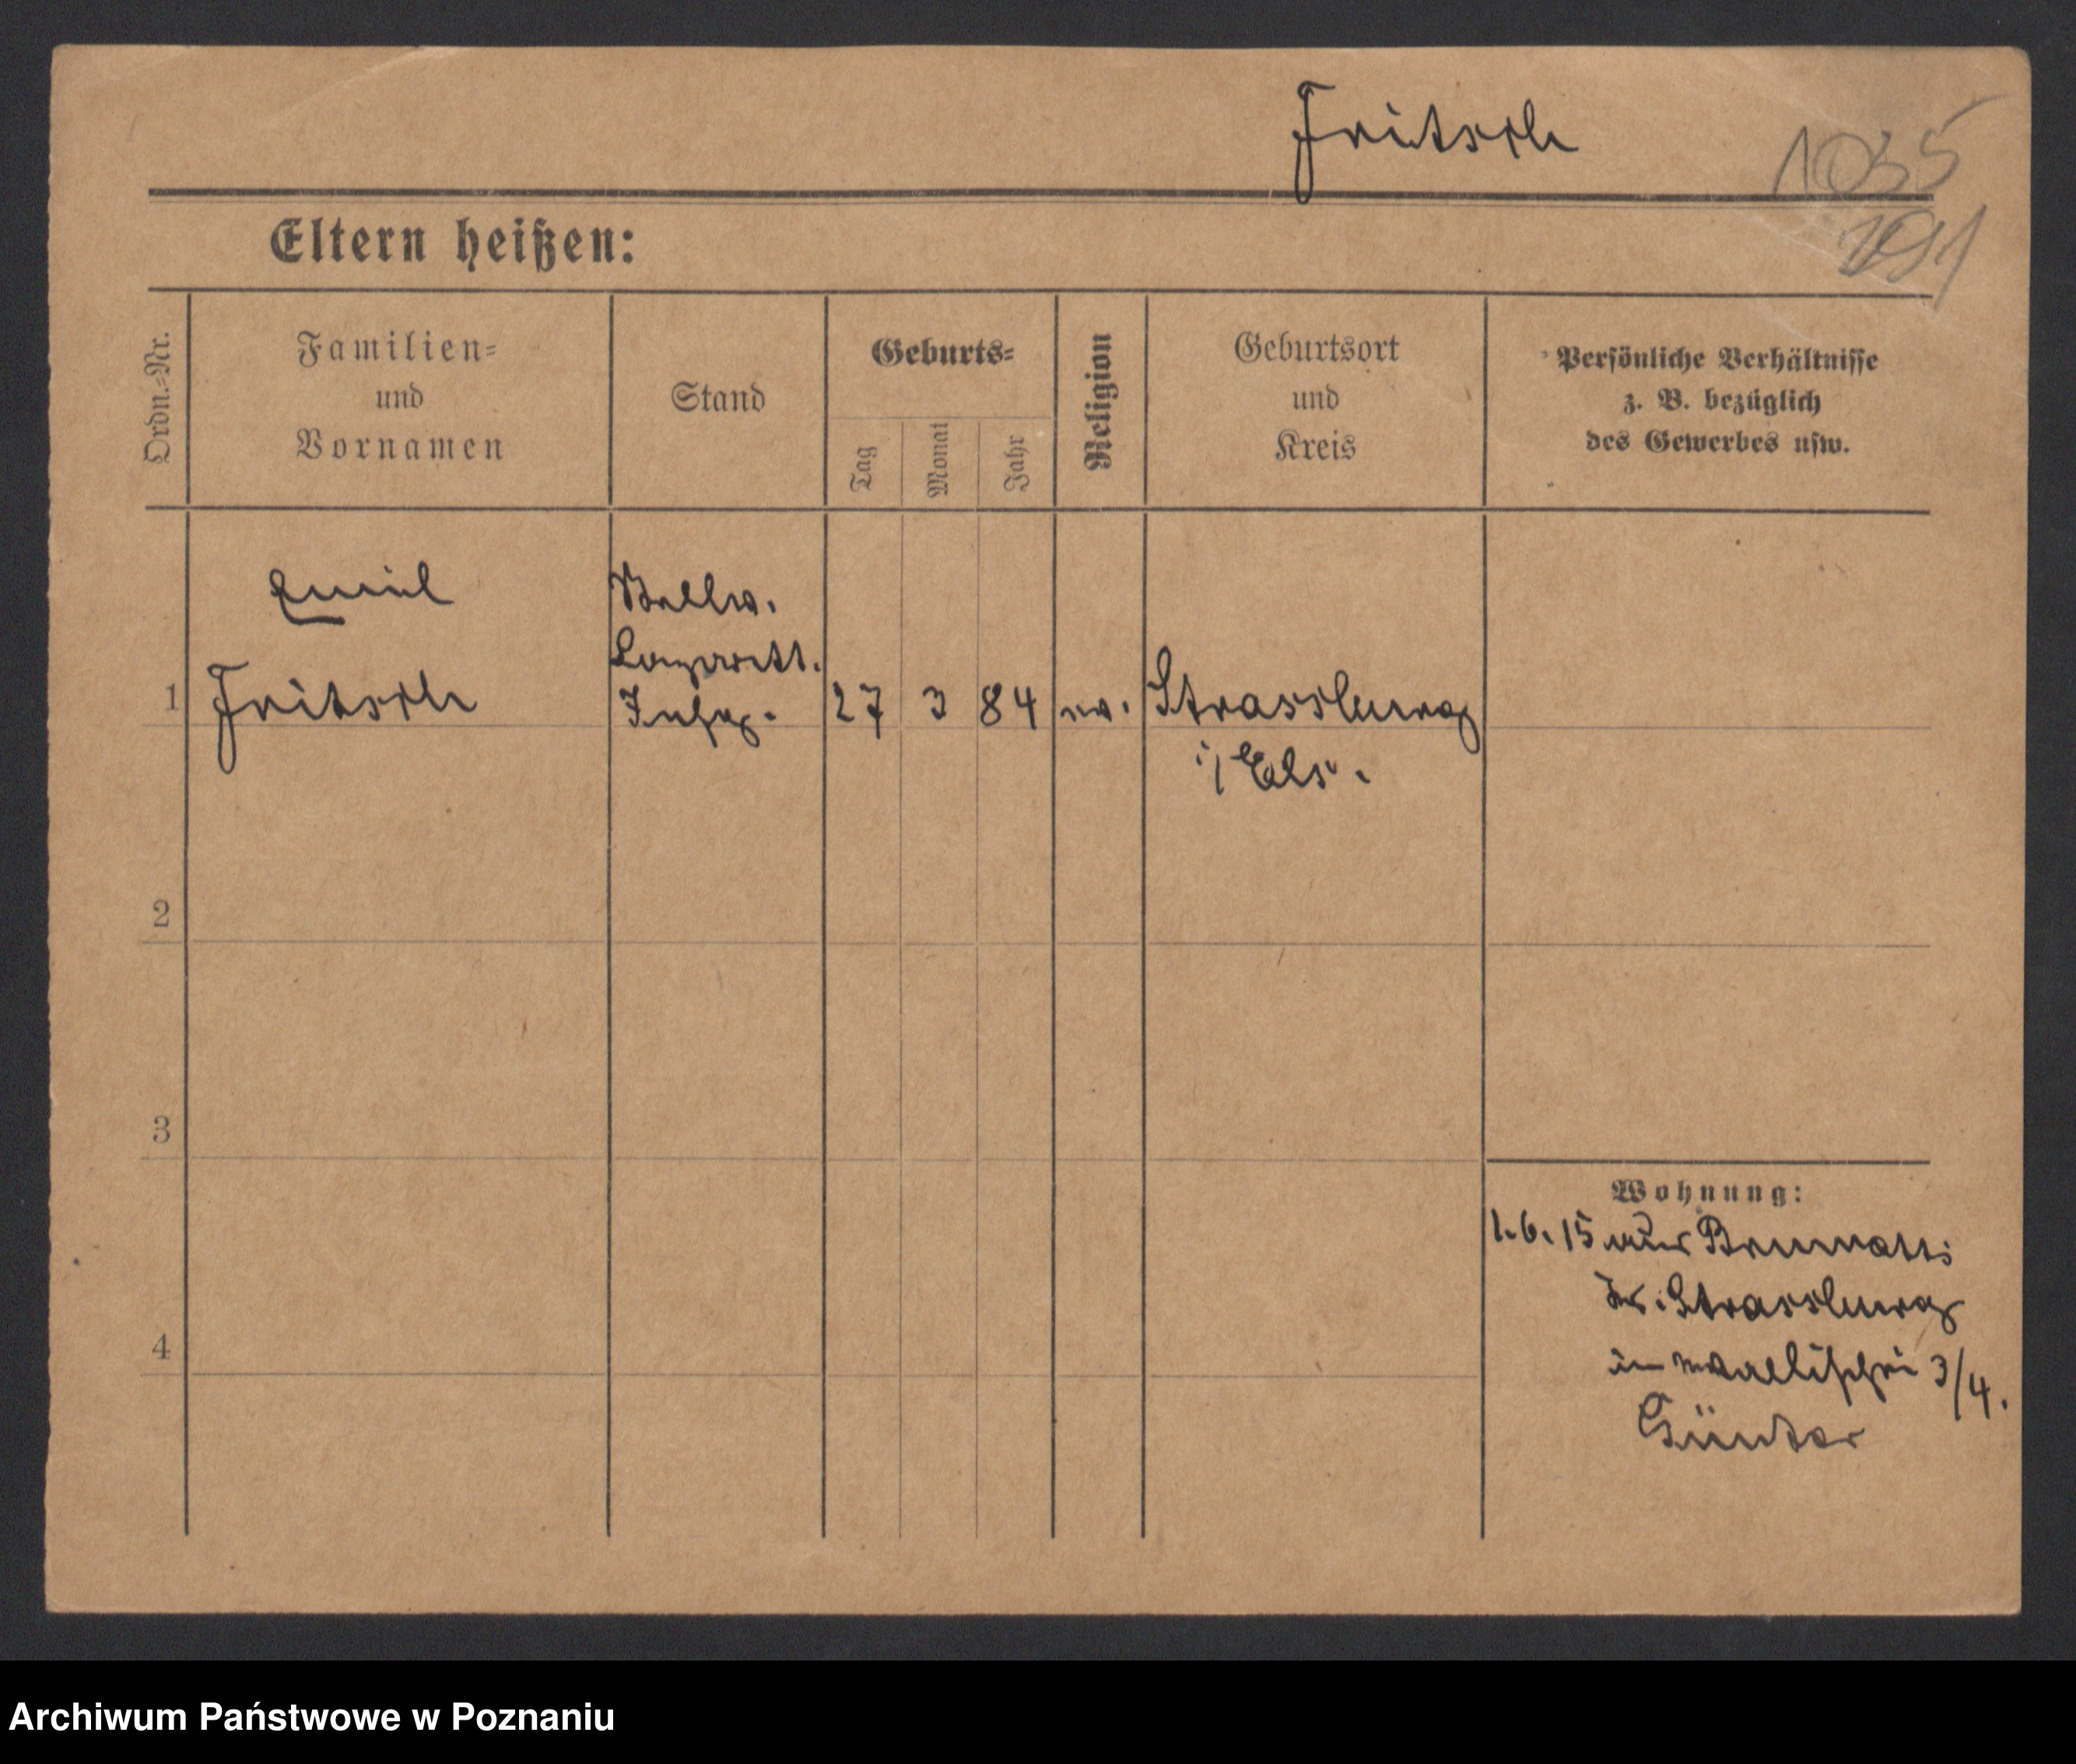 Fritsch
1035
191
Eltern heißen:
Ordn.-Nr.
Familien-
und
Vornamen
Stand
Geburts-
Tag
Monat
Jahr
Religion
Geburtsort
und
Kreis
Persönliche Verhältnisse
z. B. bezüglich
des Gewerbes usw.
Emil
Stellv.
Lazarett.
1 Fritsch Inspkt. 27 3 84 ev. Strassburg
i/Els.
2
3
4
Wohnung:
1.6.15 aus Brumath
Kr. Strassburg
in 3/4.
Günter
Archiwum Państwowe w Poznaniu